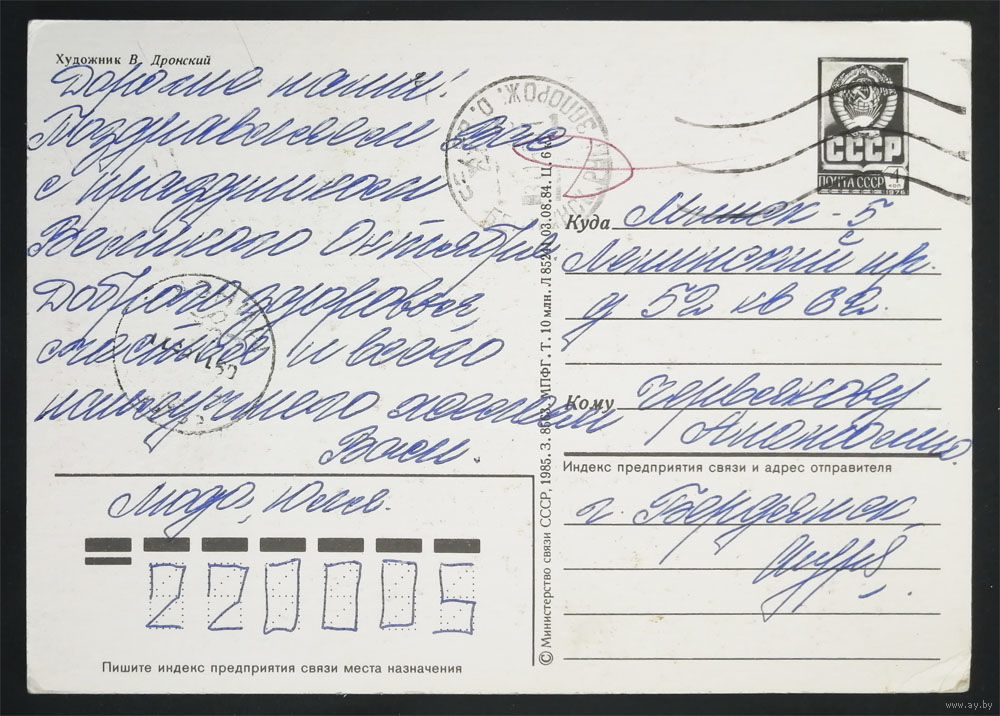 Художник В. Дронский
Дорогие наши!
Поздравляем вас
с праздником
Великого Октября
Доброго здоровья,
счастья и всего
наилучшего желаем
Вам.
Люда, Юля.
220005
Пишите индекс предприятия связи места назначения
© Министерство связи СССР, 1985. З. 8563. МПФГ. Т. 10 млн. Л 85241 03.08.84. Ц. 6 к.
ЗАПОРОЖ. О.
СССР
ПОЧТА СССР
4 коп
1976
Куда Минск - 5
Ленинский пр.
д 52 кв 62.
Кому Червякову
Анатолию.
Индекс предприятия связи и адрес отправителя
г. Бердянск
www.ay.by